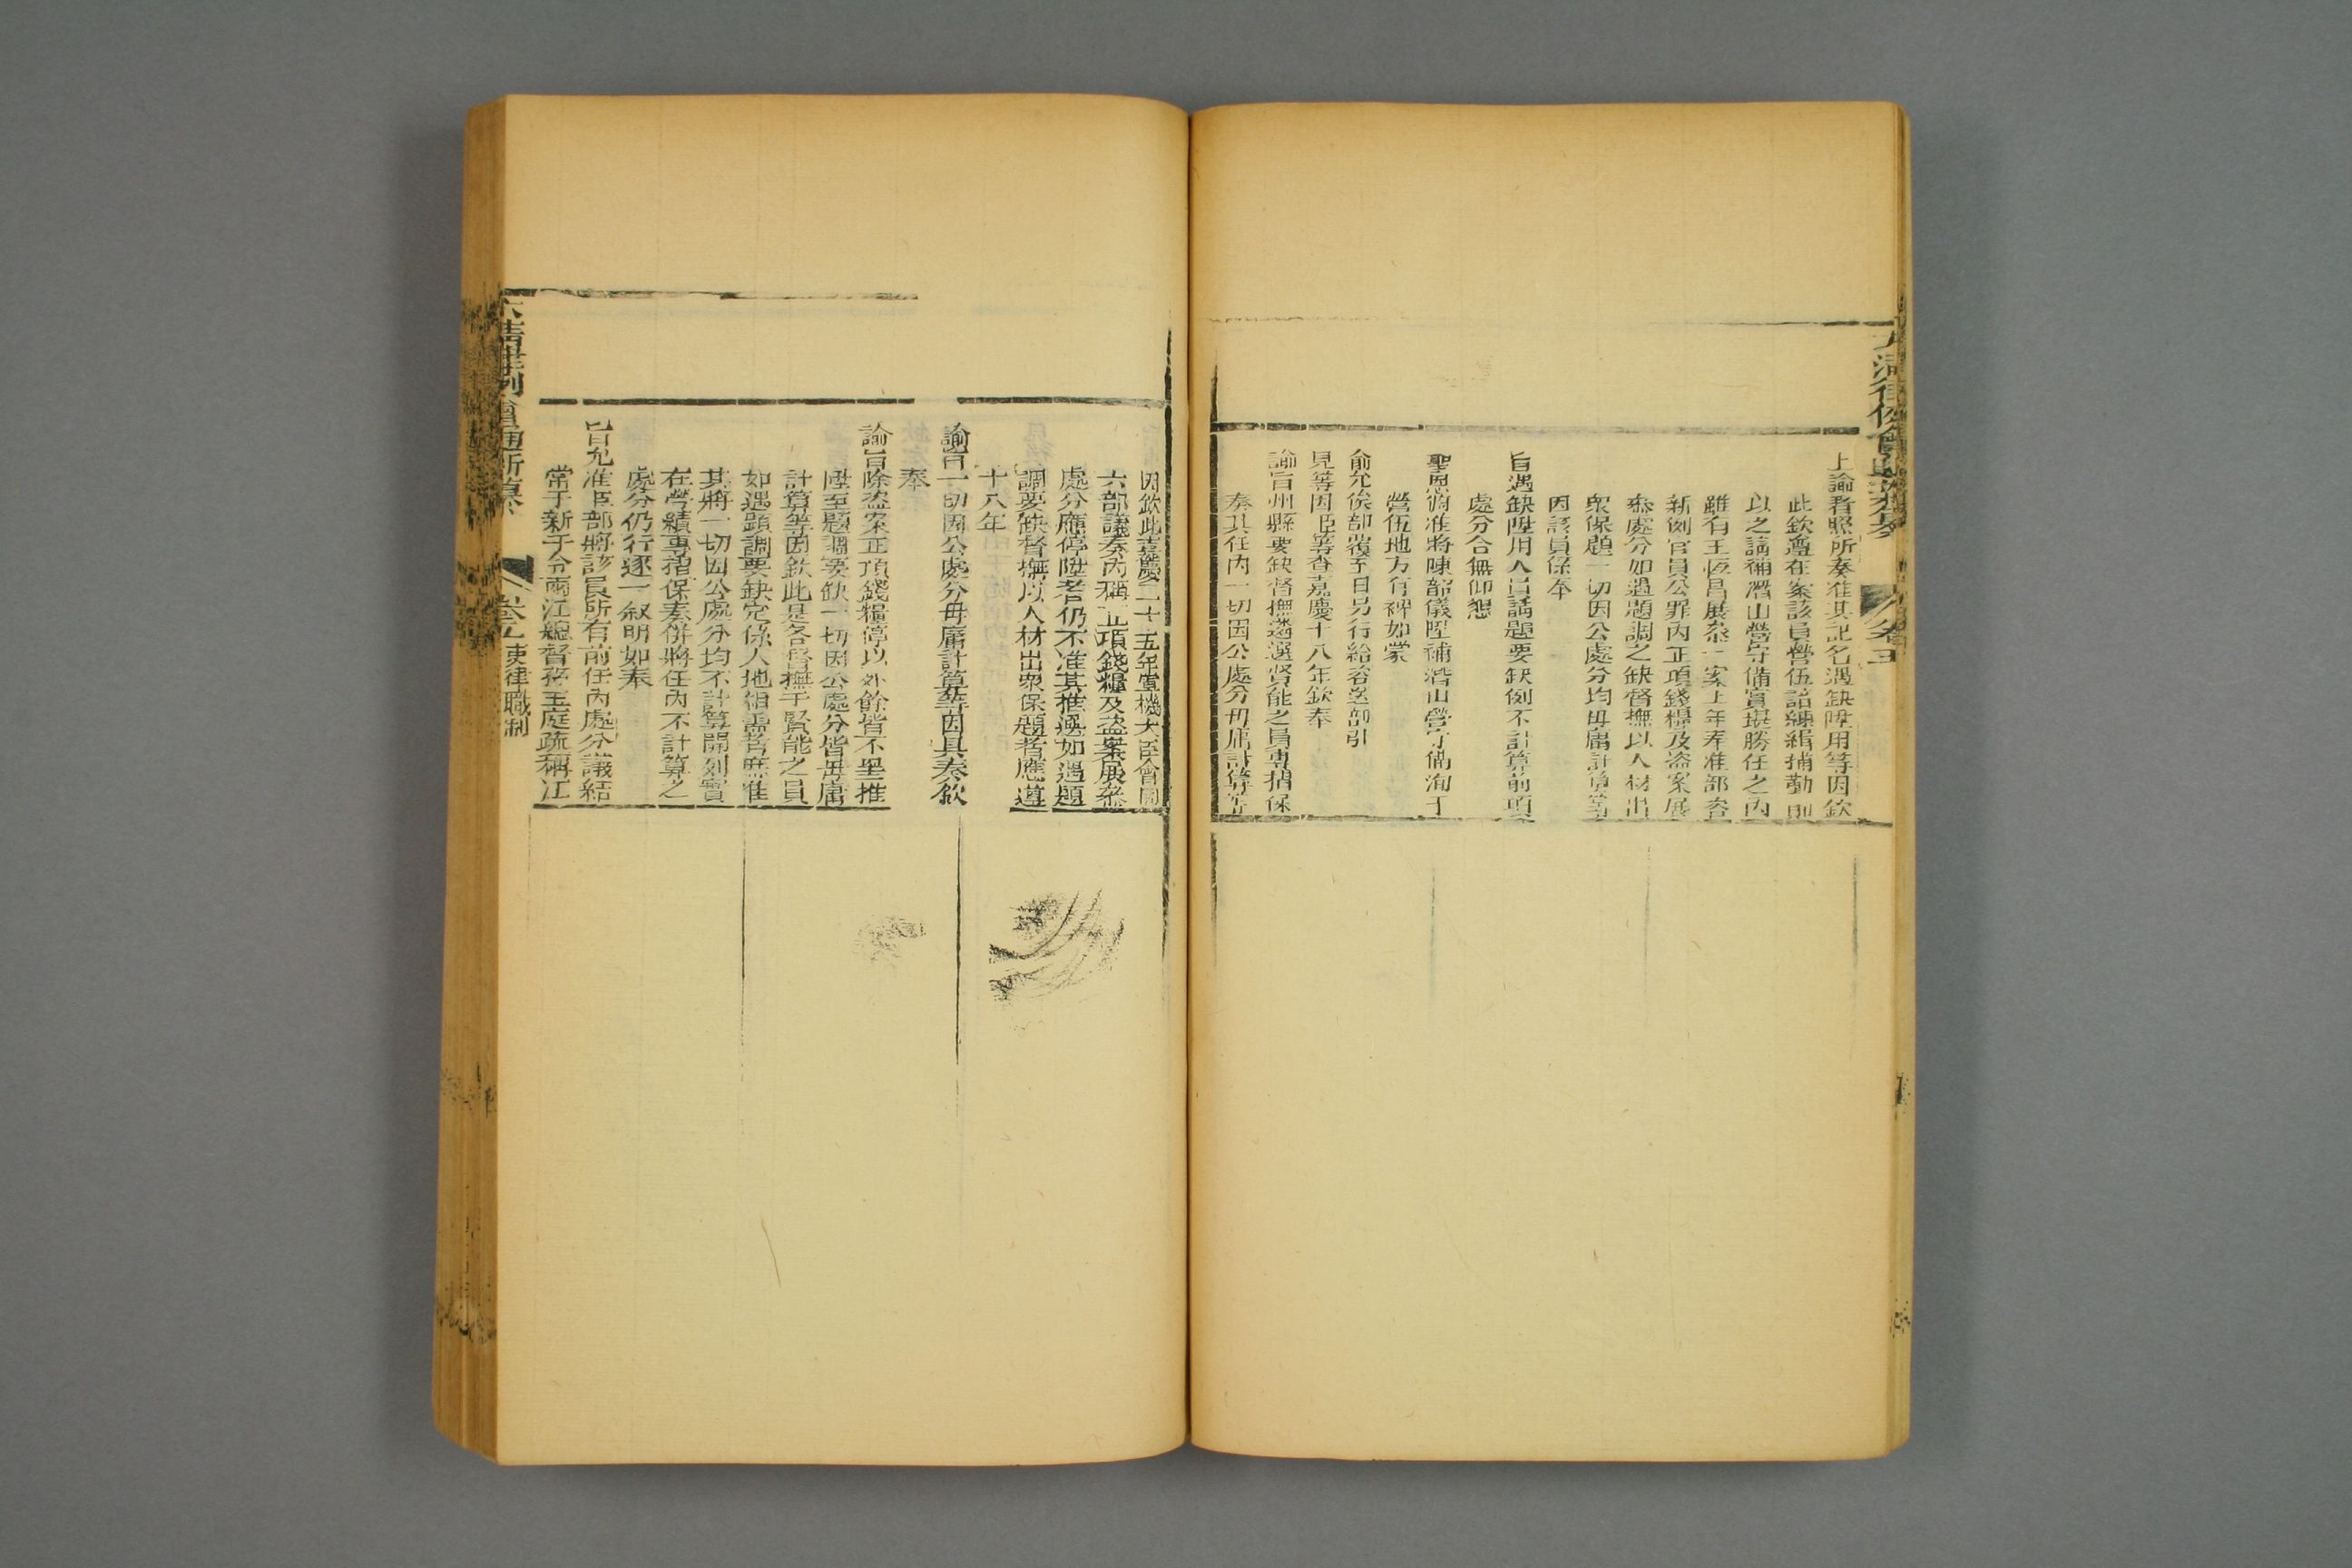 上諭着照所奏准其記名遇缺陞用等因欽
此欽遵在案該員營伍諳練緝捕勤
以之請補潛山營守備實堪勝任之內
雖有王恆昌展叅一案上年奉准部咨
新例官員公罪內正項錢糧及盗案展
叅處分如遇題調之缺督撫以人材出
眾保題一切因公處分均毋庸計算等
因該員係奉
旨遇缺陞用人員請題要缺例不計算前項
處分合無仰懇
聖恩俯准將陳韶儀陞補潛山營守備洵于
營伍地方有裨如蒙
俞允俟部覆至日另行給咨送部引
見等因臣等查嘉慶十八年欽奉
諭旨州縣要缺督撫遴選賢能之員專摺保
奏其任內一切因公處分毋庸計算等
因欽此嘉慶二十五年軍機大臣會同
六部議奏內稱正項錢糧及盗案展叅
處分應停陞者仍不准其推陞如遇題
調要缺督撫以人材出眾保題者應遵
十八年
諭旨一切因公處分毋庸計算等因具奏欽
奉
諭旨除盗案正項錢糧停以外餘皆不塁推
陞至題調要缺一切因公處分皆毋庸
計算等因欽此是各督撫于賢能之員
如遇題調要缺完係人地相需者應准
其將一切因公處分均不計算開列實
在勞績專摺保奏併將任內不計算之
處分仍行逐一叙明如奉
旨允准臣部將該員所有前任內處分議結
常于新于令兩江總督孫玉庭疏稱江
卷 吏律職制